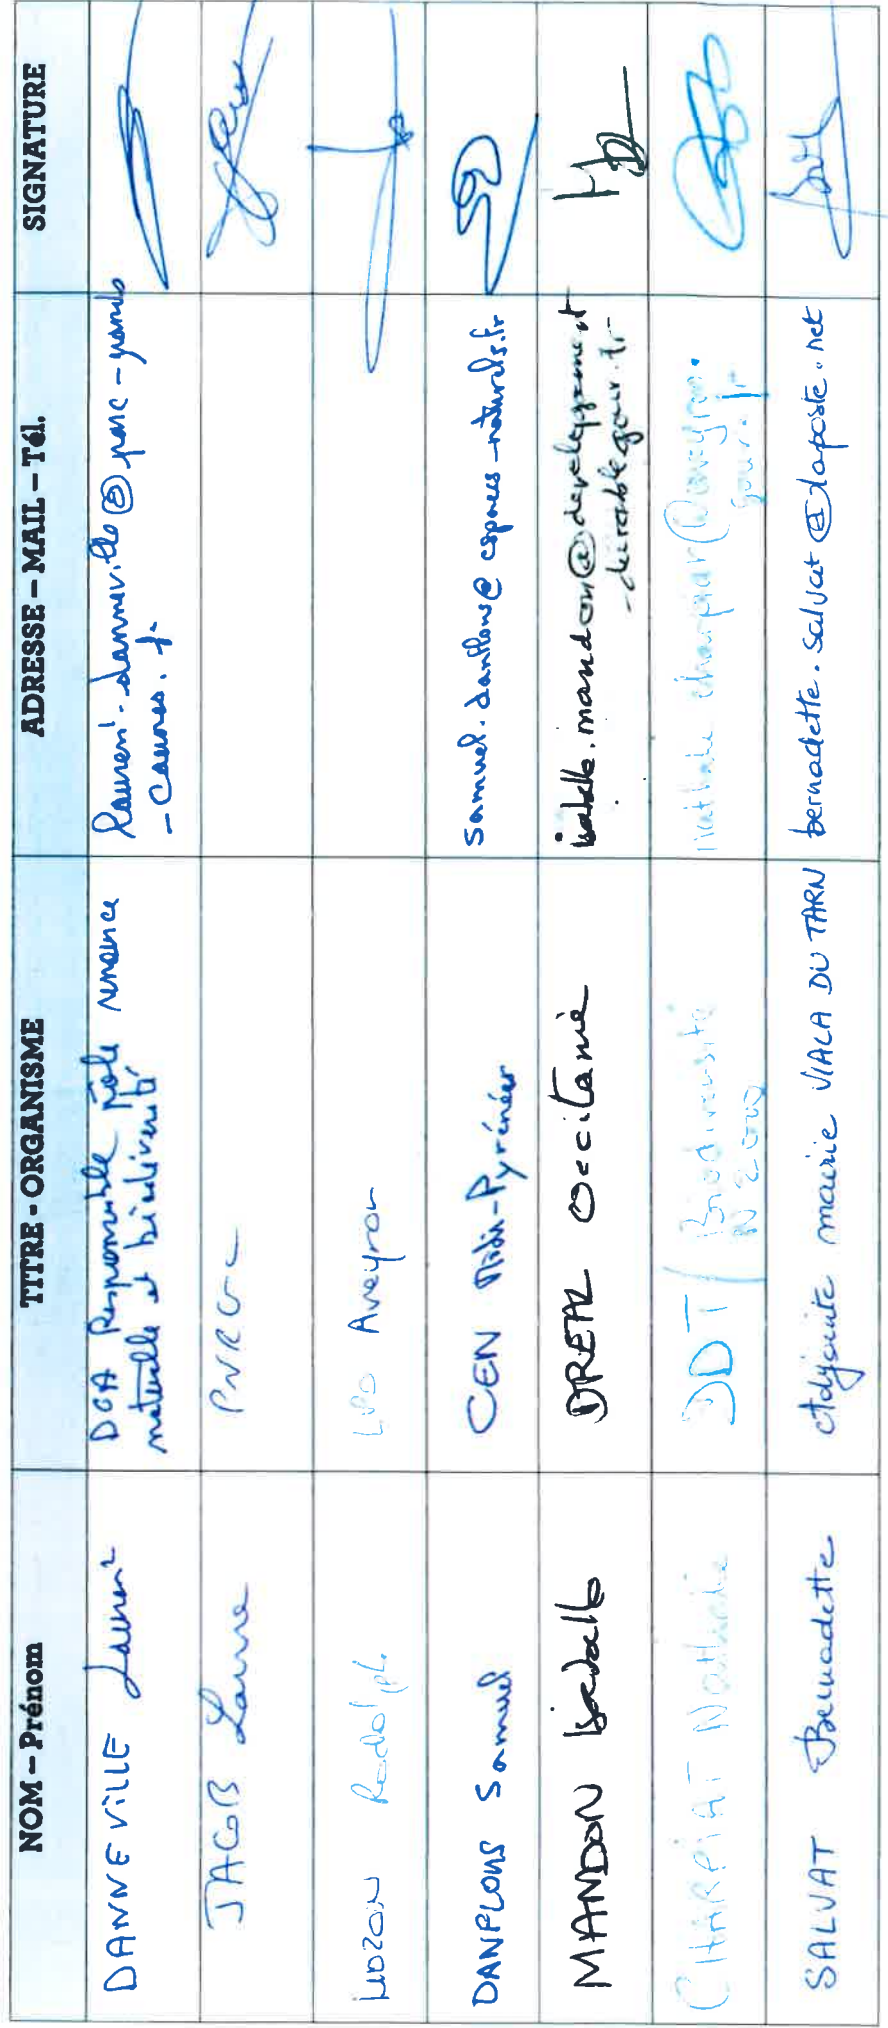 NOM – Prénom TITRE - ORGANISME ADRESSE – MAIL – Tél. SIGNATURE
DANNEVILLE Laurent
DGA Responsable pôle
naturelle et biodiversité
laurent.danneville@parc-grands
-causses.fr
JACOB Laure PNRGC
LIOZON Rodolphe LPO Aveyron
DANFLOUS Samuel CEN Midi-Pyrénées samuel.danflous@espaces-naturels.fr
MANDON Isabelle DREAL Occitanie isabelle.mandon@developpement
-durable.gouv.fr
CHARPIAT Nathalie DDT / Biodiversité
N2000
nathalie.charpiat@aveyron.
gouv.fr
SALVAT Bernadette adjointe mairie VIALA DU TARN bernadette.salvat@laposte.net